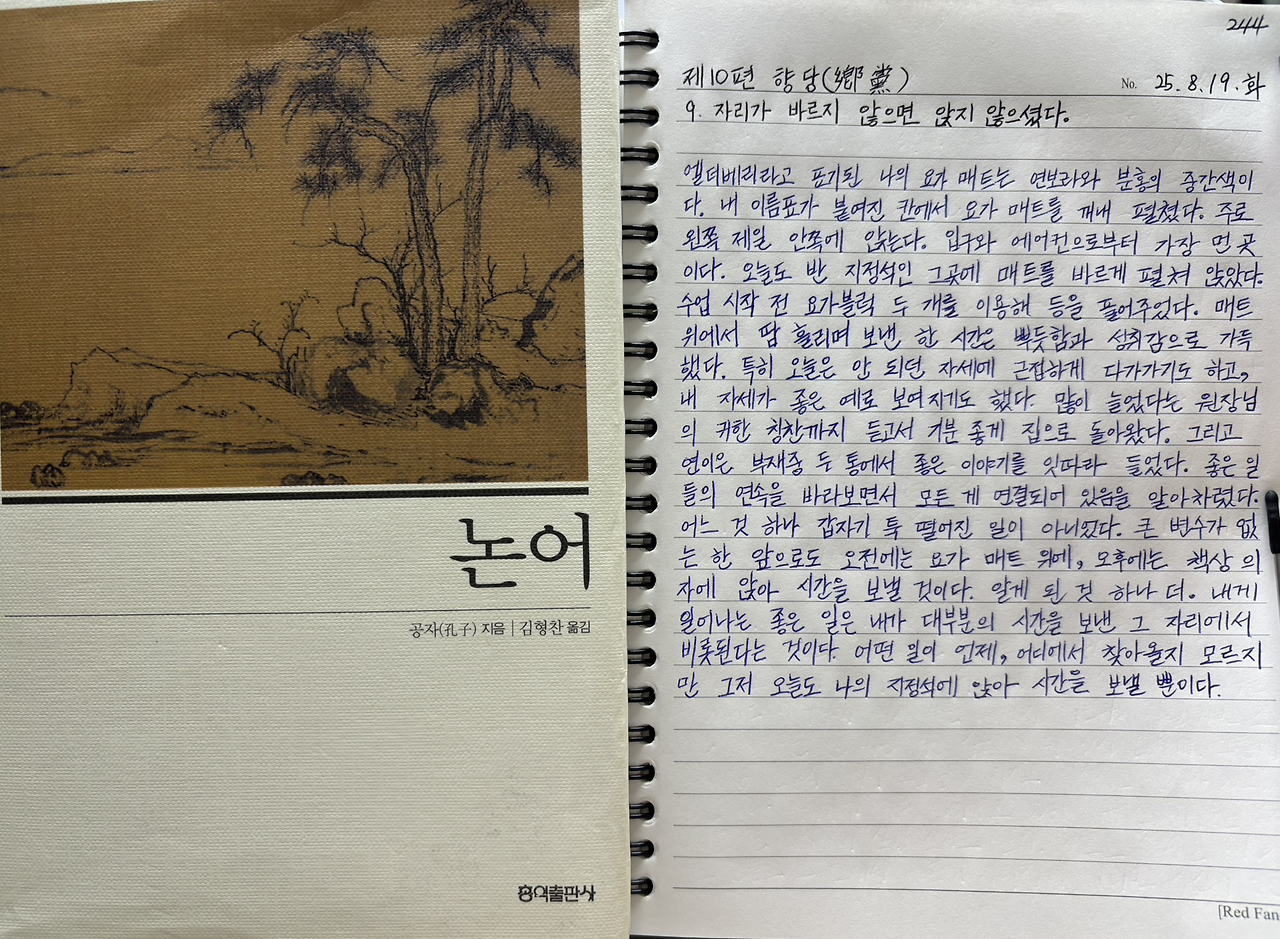 논어
공자(孔子) 지음 | 김형찬 옮김
홍익출판사
244
제10편 향당(鄕黨)
No. 25. 8. 19. 화
9. 자리가 바르지 않으면 앉지 않으셨다.
엘더베리라고 표기된 나의 요가 매트는 연보라와 분홍의 중간색이
다. 내 이름표가 붙여진 칸에서 요가 매트를 꺼내 펼쳤다. 주로
왼쪽 제일 안쪽에 앉는다. 입구와 에어컨으로부터 가장 먼 곳
이다. 오늘도 반 지정석인 그곳에 매트를 바르게 펼쳐 앉았다.
수업 시작 전 요가블럭 두 개를 이용해 등을 풀어주었다. 매트
위에서 땀 흘리며 보낸 한 시간은 뿌듯함과 성취감으로 가득
했다. 특히 오늘은 안 되던 자세에 근접하게 다가가기도 하고,
내 자세가 좋은 예로 보여지기도 했다. 많이 늘었다는 원장님
의 귀한 칭찬까지 듣고서 기분 좋게 집으로 돌아왔다. 그리고
연이은 부재중 두 통에서 좋은 이야기를 잇따라 들었다. 좋은 일
들의 연속을 바라보면서 모든 게 연결되어 있음을 알아차렸다.
어느 것 하나 갑자기 툭 떨어진 일이 아니었다. 큰 변수가 없
는 한 앞으로도 오전에는 요가 매트 위에, 오후에는 책상 의
자에 앉아 시간을 보낼 것이다. 알게 된 것 하나 더. 내게
일어나는 좋은 일은 내가 대부분의 시간을 보낸 그 자리에서
비롯된다는 것이다. 어떤 일이 언제, 어디에서 찾아올지 모르지
만 그저 오늘도 나의 지정석에 앉아 시간을 보낼 뿐이다.
[Red Fan